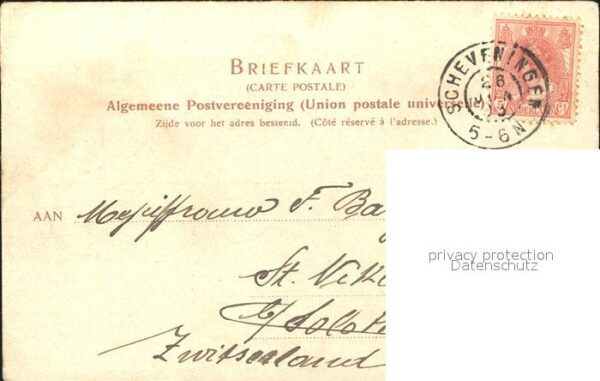 BRIEFKAART
(CARTE POSTALE)
Algemeene Postvereeniging (Union postale universelle)
Zijde voor het adres bestemd. (Côté réservé à l'adresse.)
SCHEVENINGEN
26
5-6 N
AAN F. Ba
St.
Zwitserland
privacy protection
Datenschutz